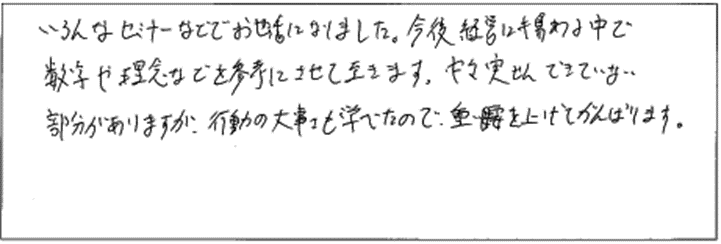 いろんなセミナーなどでお世話になりました。今後経営に携わる中で
数字や理念などを参考にさせて頂きます。中々実せんできていない
部分がありますが、行動の大事さも学べたので、重腰を上げてがんばります。